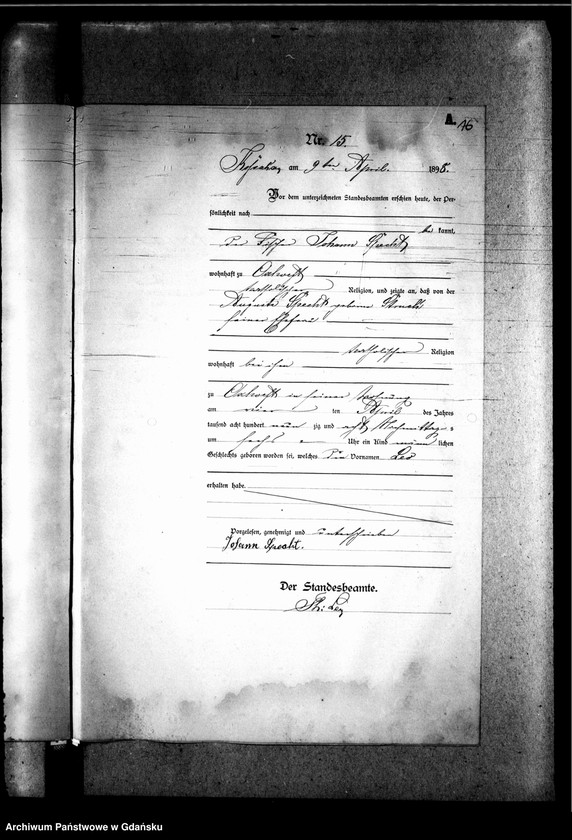 A.
16
Nr. 15.
am 9ten April. 1898.
Vor dem unterzeichneten Standesbeamten erschien heute, der Per-
sönlichkeit nach
be kannt,
der Johann Specht
wohnhaft zu
katholischer Religion, und zeigte an, daß von der
Auguste Specht geborne
seiner Ehefrau
katholischer Religion
wohnhaft bei ihm
zu in seiner Wohnung
am vier ten April des Jahres
tausend acht hundert neun zig und acht Nachmittags
um sechs Uhr ein Kind männ lichen
Geschlechts geboren worden sei, welches den Vornamen Leo
erhalten habe.
Vorgelesen, genehmigt und unterschrieben
Johann Specht.
Der Standesbeamte.
Archiwum Państwowe w Gdańsku